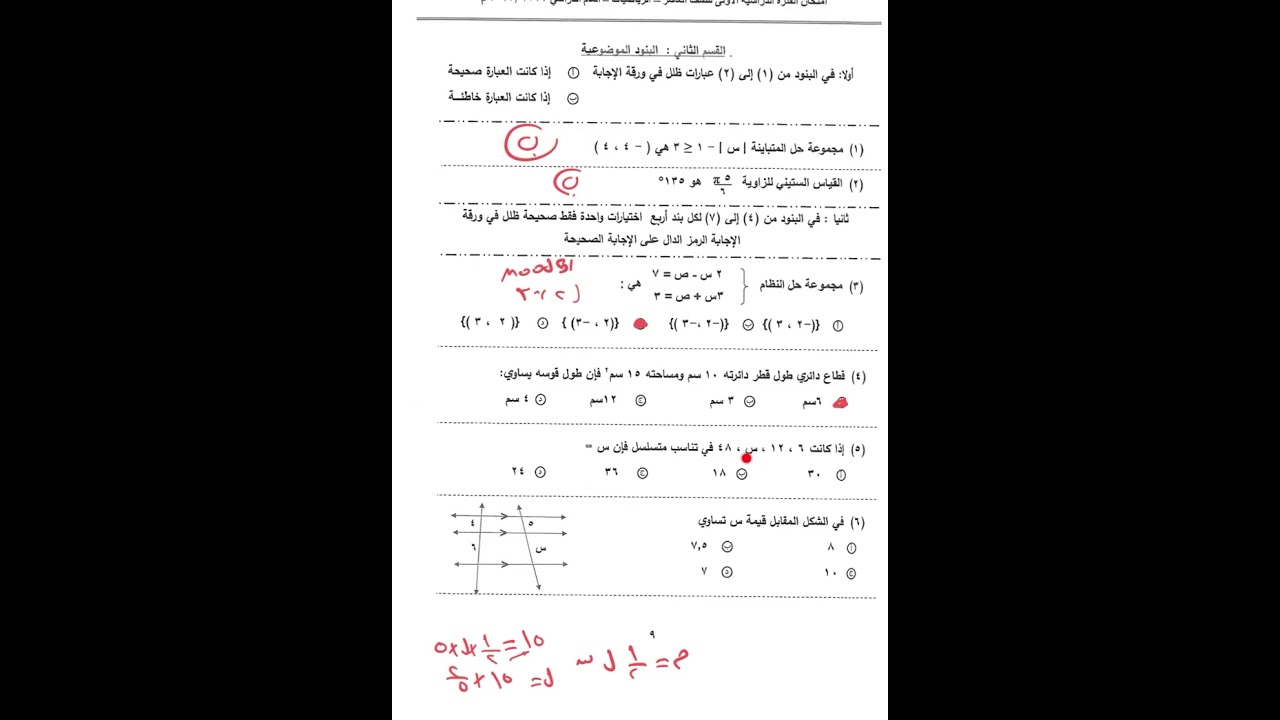 القسم الثاني : البنود الموضوعية
أولا: في البنود من (١) إلى (٢) عبارات ظلل في ورقة الإجابة أ إذا كانت العبارة صحيحة
ب إذا كانت العبارة خاطئـة
(١) مجموعة حل المتباينة | س | – ١ ≤ ٣ هي ( – ٤ ، ٤ ) ب
(٢) القياس الستيني للزاوية ٥π/٦ هو ١٣٥° ب
ثانيا : في البنود من (٤) إلى (٧) لكل بند أربع اختيارات واحدة فقط صحيحة ظلل في ورقة
الإجابة الرمز الدال على الإجابة الصحيحة
(٣) مجموعة حل النظام ٢ س - ص = ٧
٣س + ص = ٣ هي :
أ {(-٢ ، ٣ )} ب {(-٢ ،-٣ )} {(٢ ، -٣) } د {( ٢ ، ٣ )}
(٤) قطاع دائري طول قطر دائرته ١٠ سم ومساحته ١٥ سم٢ فإن طول قوسه يساوي:
٦سم ب ٣ سم ج ١٢سم د ٤ سم
(٥) إذا كانت ٦ ، ١٢ ، س ، ٤٨ في تناسب متسلسل فإن س =
أ ٣٠ ب ١٨ ج ٣٦ د ٢٤
(٦) في الشكل المقابل قيمة س تساوي
أ ٨ ب ٧,٥
ج ١٠ د ٧
٥ ٤
س ٦
٩
م = ١/٢ ل
١٥ = ١/٢ × ل × ٥
ل = ١٥ × ٢/٥